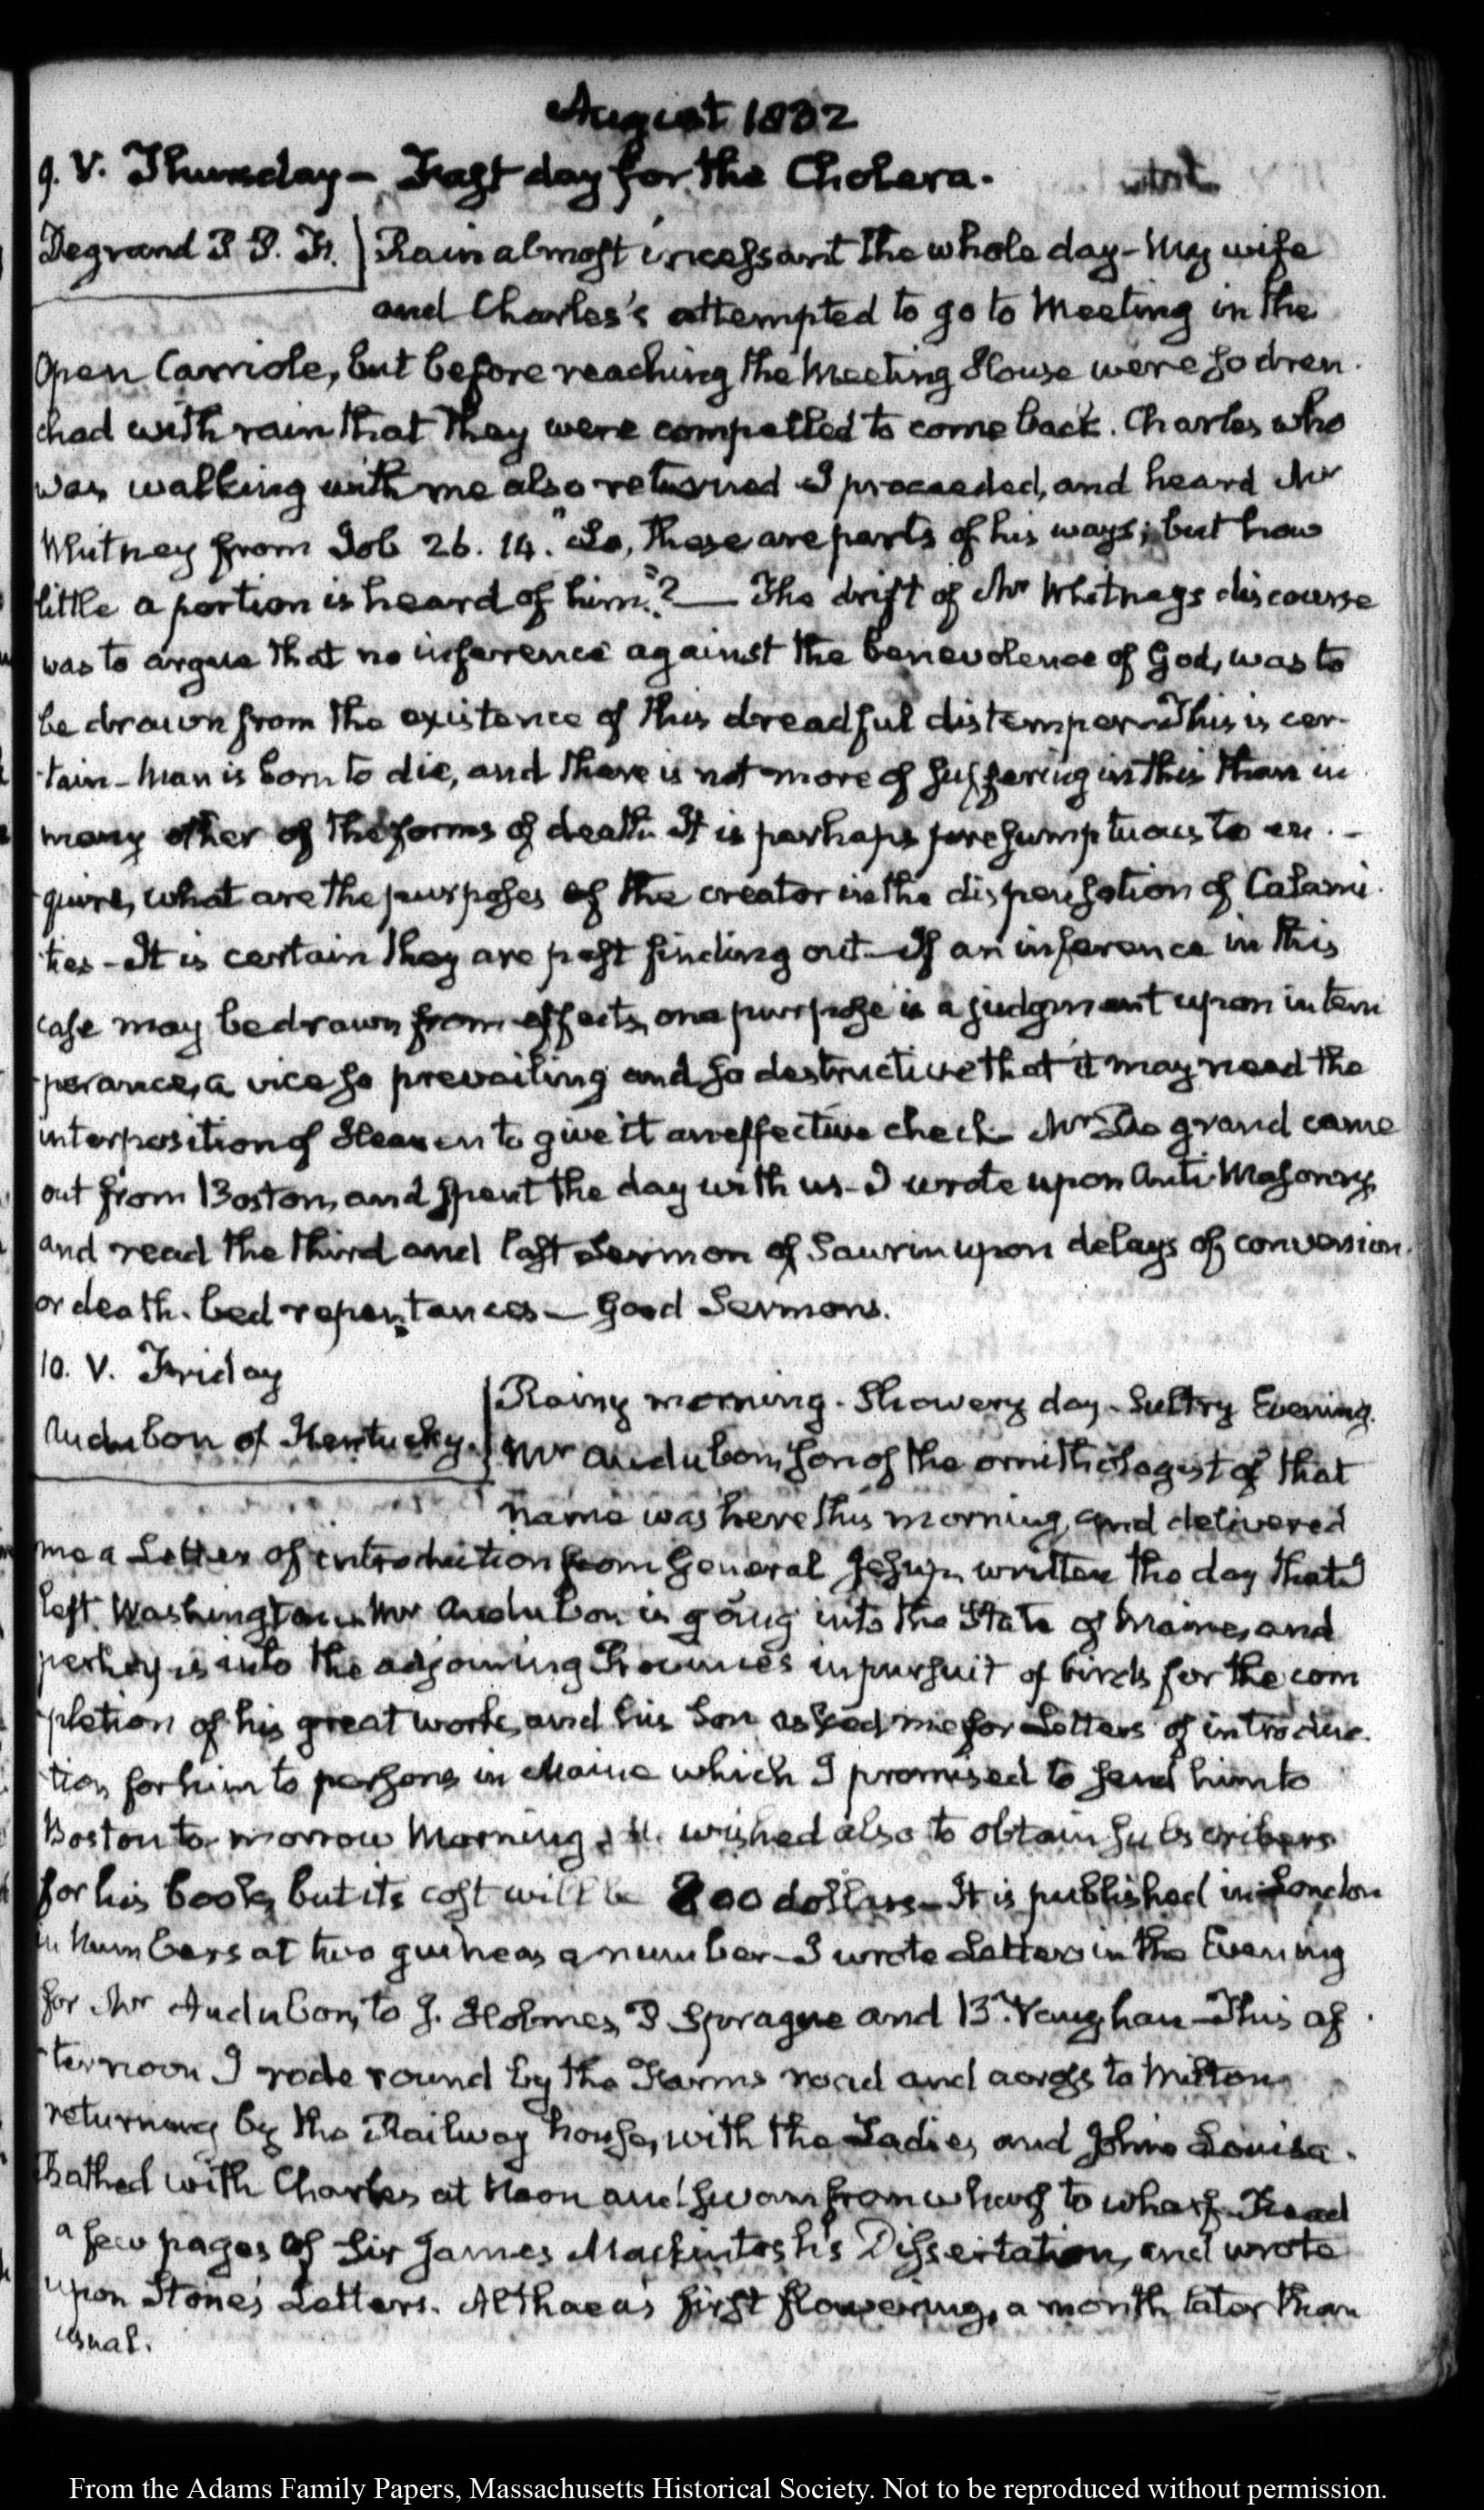 August 1832
9. V. Thursday – Fast day for the Cholera.
Degrand P. P. F.
Rain almost incessant the whole day – My wife
and Charles's attempted to go to Meeting in the
Open Carriole, but before reaching the Meeting House were so dren-
ched with rain that they were compelled to come back. Charles who
was walking with me also returned I proceeded, and heard Mr
Whitney from Job 26. 14. "Lo, these are parts of his ways; but how
little a portion is heard of him"? — The drift of Mr Whitney's discourse
was to argue that no inference against the benevolence of God, was to
be drawn from the existence of this dreadful distemper – This is cer-
tain – Man is born to die, and there is not more of suffering in this than in
many other of the forms of death. It is perhaps presumptuous to en-
quire, what are the purposes of the creator in the dispensation of Calami-
ties – It is certain they are past finding out – If an inference in this
case may be drawn from effects, one purpose is a judgment upon intem
perance, a vice so prevailing and so destructive that it may need the
interposition of Heaven to give it an effective check – Mr De grand came
out from Boston, and spent the day with us – I wrote upon Anti-Masonry
and read the third and last Sermon of Saurin upon delays of conversion.
or death-bed repentances – Good Sermons.
10. V. Friday
Audubon of Kentucky.
Rainy morning. Showery day – Sultry Evening.
Mr Audubon, son of the ornithologist of that
name was here this morning, and delivered
me a Letter of introduction from General Jesup, written the day that I
left Washington. Mr Audubon is going into the State of Maine, and
perhaps into the adjoining Provinces in pursuit of birds for the com
pletion of his great work, and his Son asked me for Letters of introduc-
tion for him to persons in Maine which I promised to send him to
Boston to-morrow Morning. He wished also to obtain subscribers
for his book, but its cost will be 800 dollars – It is published in London
in Numbers at two guineas a number – I wrote Letters in the Evening
for Mr Audubon, to J. Holmes, P Sprague and B. Vaughan – This af-
ternoon I rode round by the Farms road and across to Milton
returning by the Railway house, with the Ladies and John's Louisa.
Bathed with Charles at Noon and swam from wharf to wharf. Read
a few pages of Sir James Mackintosh's Dissertation, and wrote
upon Stone's Letters. Althaea's first flowering, a month later than
usual.
From the Adams Family Papers, Massachusetts Historical Society. Not to be reproduced without permission.